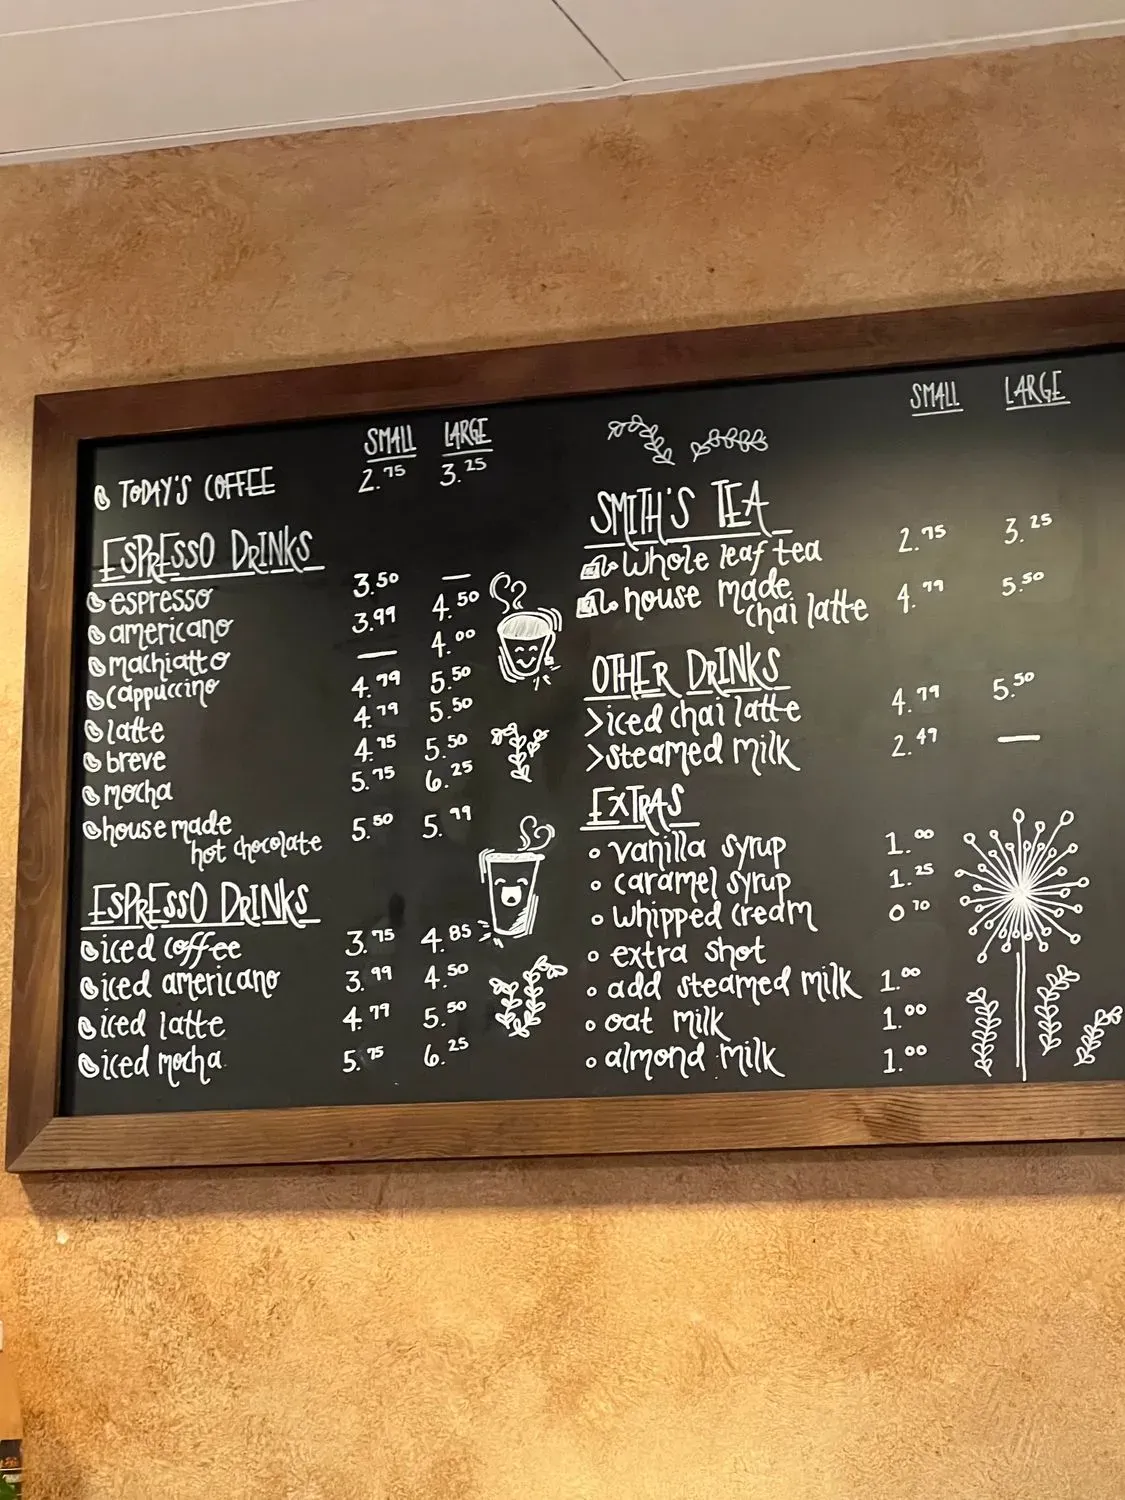 SMALL LARGE
TODAY'S COFFEE 2.75 3.25
ESPRESSO DRINKS
espresso 3.50 —
americano 3.99 4.50
machiatto — 4.00
cappuccino 4.79 5.50
latte 4.79 5.50
breve 4.95 5.50
mocha 5.75 6.25
house made
hot chocolate 5.50 5.99
ESPRESSO DRINKS
iced coffee 3.75 4.85
iced americano 3.99 4.50
iced latte 4.79 5.50
iced mocha 5.75 6.25
SMALL LARGE
SMITH'S TEA
whole leaf tea 2.95 3.25
house made
chai latte 4.79 5.50
OTHER DRINKS
>iced chai latte 4.79 5.50
>steamed milk 2.49 —
EXTRAS
vanilla syrup 1.00
caramel syrup 1.25
whipped cream 0.70
extra shot
add steamed milk 1.00
oat milk 1.00
almond milk 1.00